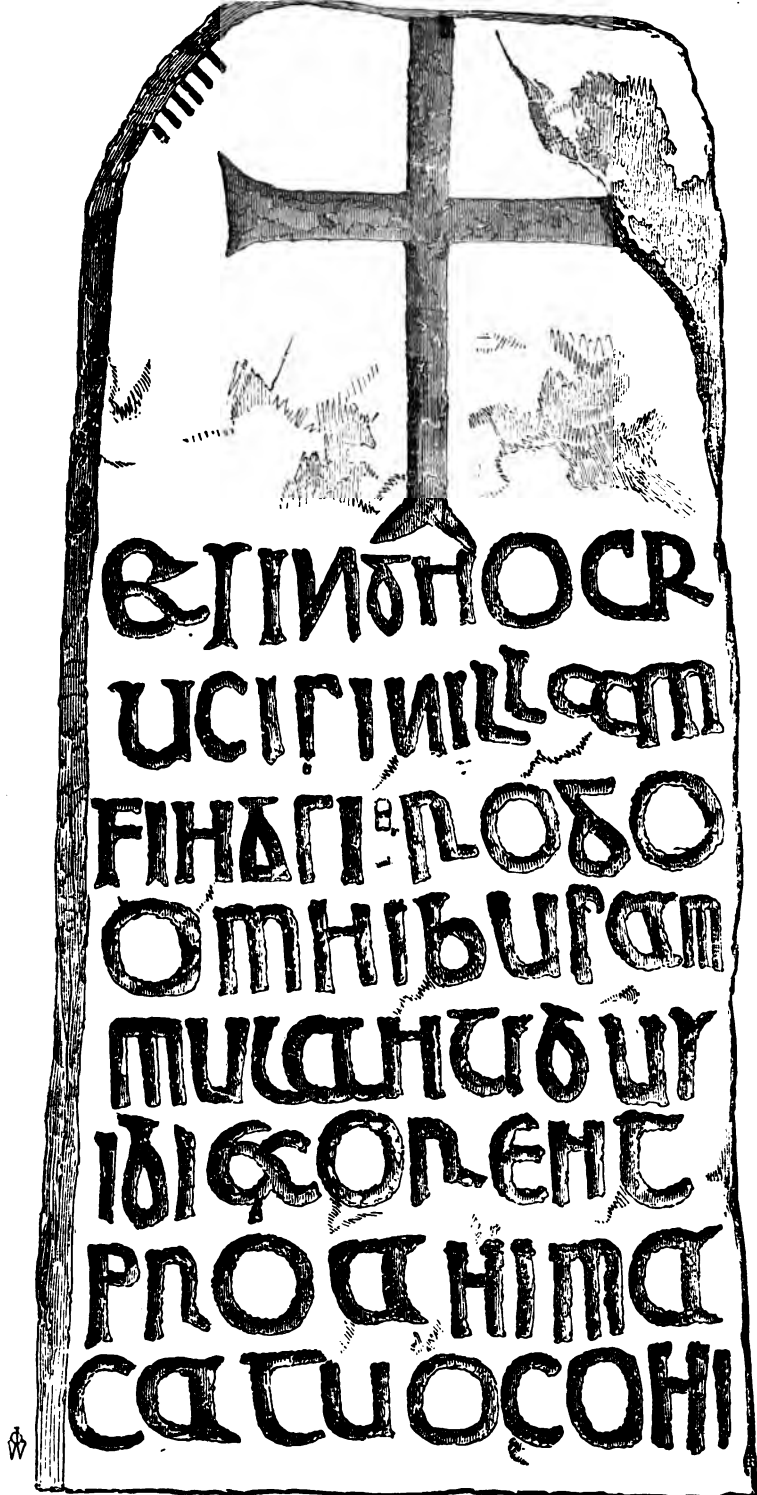 ET SINGNO CR
UCIS IN ILLAM
FINGSI ROGO
OMNIBUS AM
MULANTIBUS
IBI EXORENT
PRO ANIMA
CATUOCONI